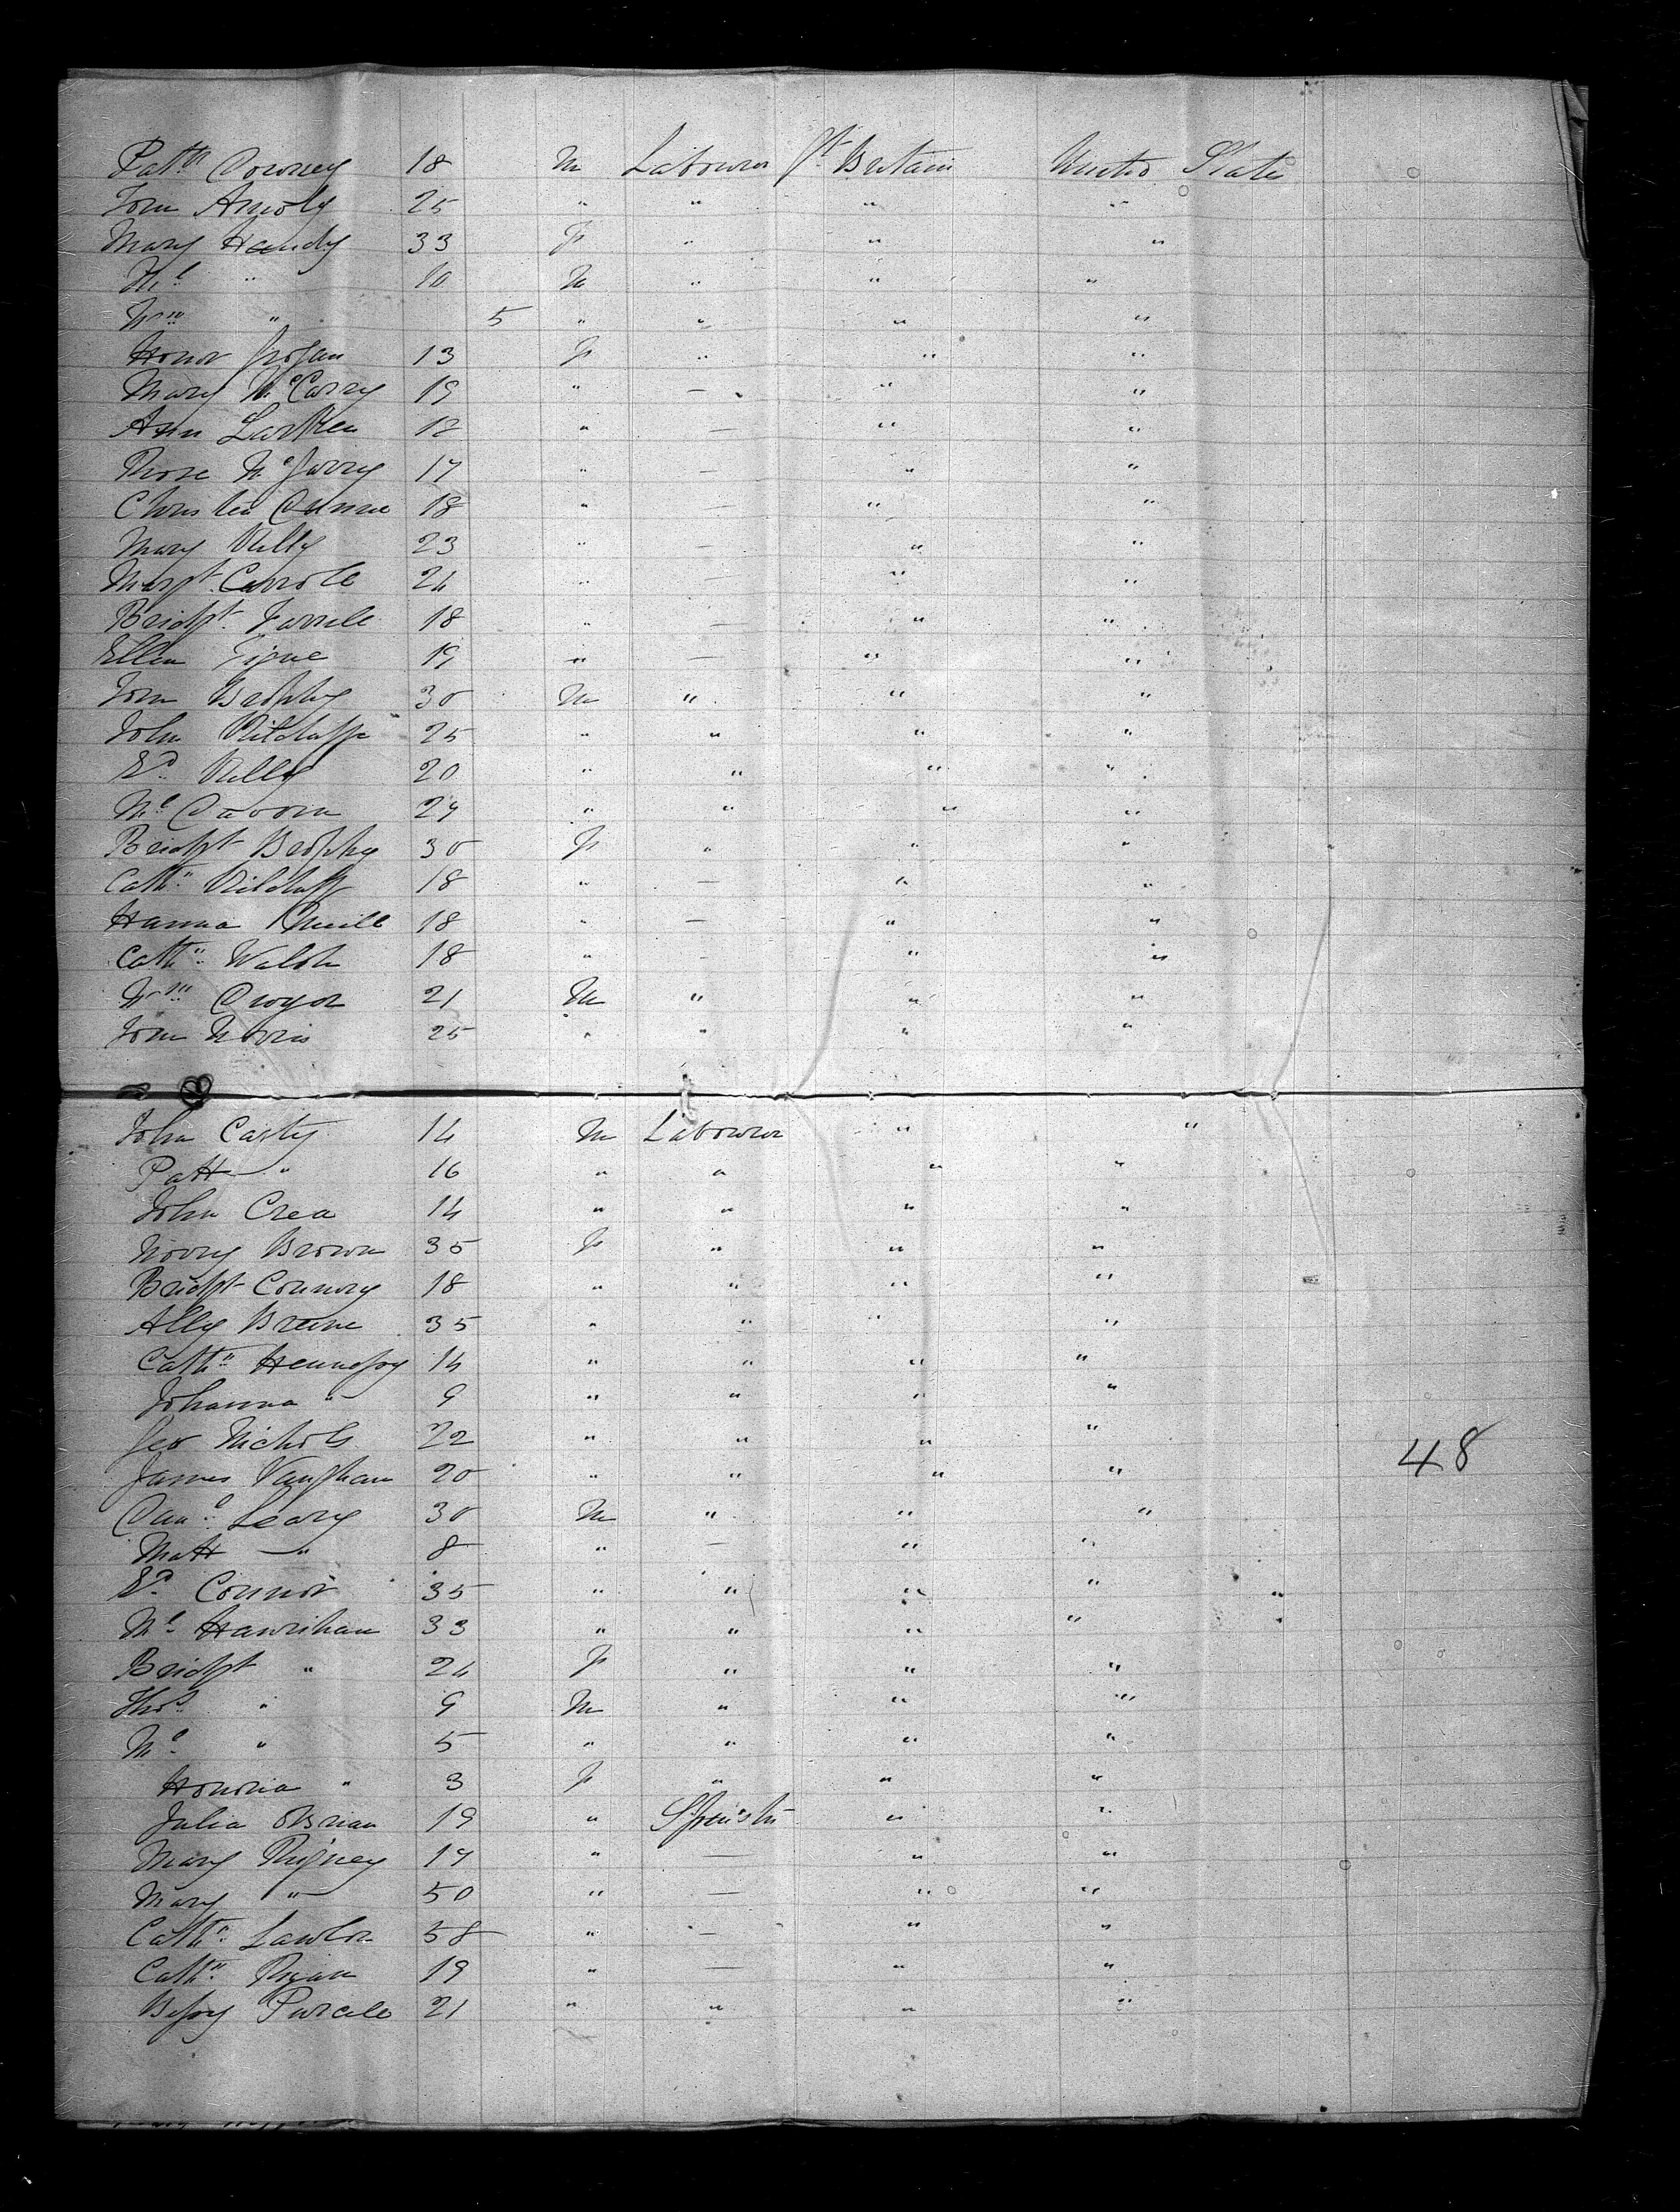 Patk Downey 18 M Labourer Gt Britain United States
Tom Arnoly 25 " " " "
Mary Handy 33 F " " "
Ml " 10 M " " "
Wm " 5 " " " "
Honor Grogan 13 F " " "
Mary McCarry 19 " — " "
Ann Larkin 18 " — " "
Rose McGarry 17 " — " "
Christia Dunne 18 " — " "
Mary Kelly 23 " — " "
Margt Carroll 24 " — " "
Bridgt Farrell 18 " — " "
Ellen Tigue 19 " — " "
Tom Brophy 30 M " " "
John Kilduffe 25 " " " "
Ed Kelly 20 " " " "
Ml Davorin 27 " " " "
Bridgt Brophy 30 F " " "
Cathn Kilduff 18 " — " "
Hanna ONeill 18 " — " "
Cathn Walsh 18 " - " "
Wm Dwyer 21 M " " "
Tom Norris 25 " " " "
John Carty 14 M Labourer " "
Patt " 16 " " " "
John Crea 14 " " " "
Norry Brown 35 F " " "
Bridgt Connory 18 " " " "
Ally Brune 35 " " " "
Cathn Hennessy 14 " " " "
Johanna " 9 " " " "
Geo Nichols 22 " " " "
James Vaughan 20 " " " "
48
Danl Leary 30 M " " "
Matt " 8 " — " "
Ed Connor 35 " " " "
Ml Hanrihan 33 " " " "
Bridgt " 24 F " " "
Thos " 9 M " " "
Ml " 5 " " " "
Honoria " 3 F " " "
Julia OBrian 19 " Spinster " "
Mary Rigney 17 " — " "
Mary " 50 " — " "
Cathn Lawlor 58 " — " "
Cathn Ryan 19 " — " "
Bessy Purcell 21 " " " "